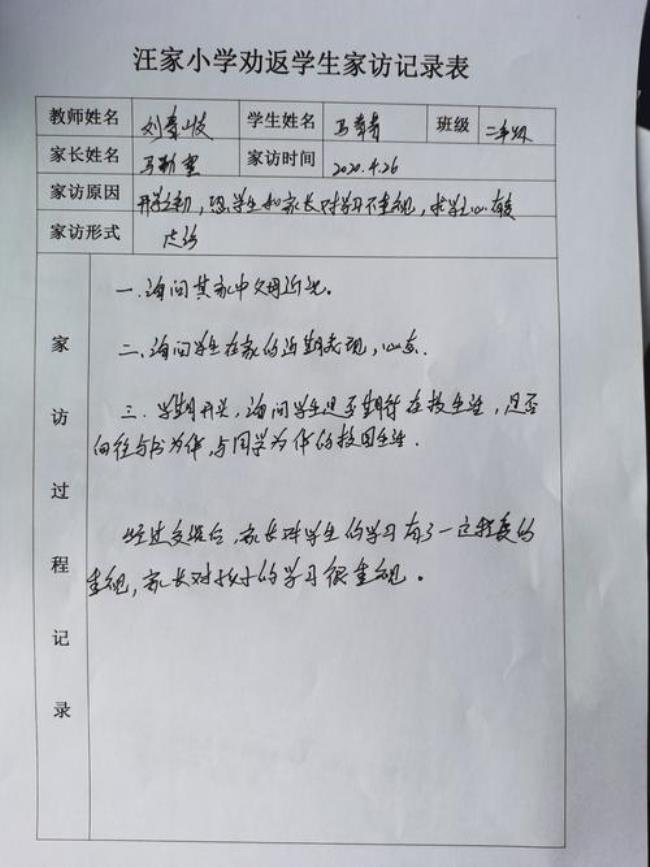 汪家小学劝返学生家访记录表
教师姓名 刘 岐 学生姓名 马 班级 二年级
家长姓名 马 家访时间 2020.4.26
家访原因 开学初，恐学生和家长对学习不重视，求学心
家访形式
家访过程记录
一.询问其家中父母近况。
二、询问学生在家的近期表现，心态.
三.学期开头，询问学生是否期待在校生活，是否
向往与书为伴，与同学为伴的校园生活.
经过交谈后，家长对学生的学习有了一定程度的
重视，家长对孩子的学习很重视。